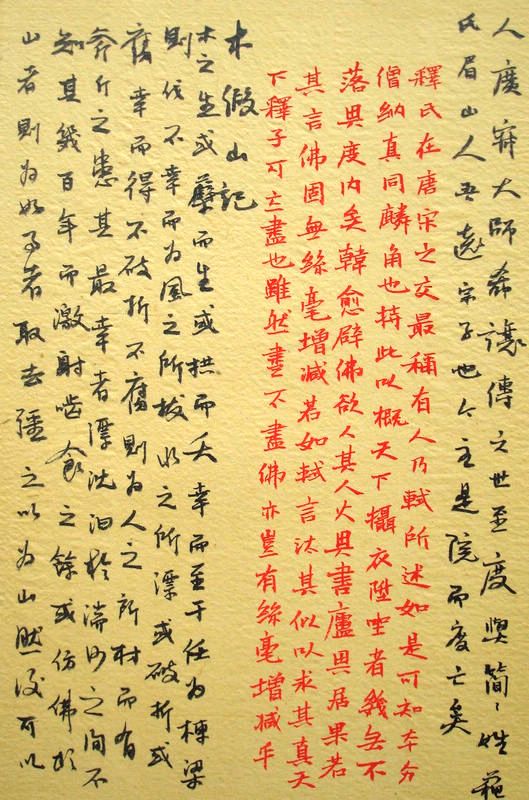 人廣寂大師希讓傳六世至度與簡〻姓蘓
氏眉山人吾遠宗子也今主是院而度亡矣
釋氏在唐宋之交最稱有人乃軾所述如是可知本分
僧納真同麟角也持此以概天下攝衣陞坐者幾無不
落其度内矣韓愈辟佛欲人其人火其書廬其居果若
其言佛固無絲毫增減若如軾言汰其似以求其真天
下釋子可亡盡也雖然盡不盡佛亦豈有絲毫增減乎
木假山記
木之生或孽而生或拱而夭幸而至于任為棟梁
則伐不幸而為風之所拔水之所漂或破折或
腐幸而得不破折不腐則為人之所材而有
斧斤之患其最幸者漂沈汩於湍沙之間不
知其幾百年而激射啮食之餘或仿佛於
山者則為好事者取去彊之以為山然後可以